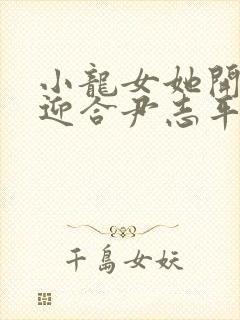 小龍女她開
迎合尹志平
千島女妖